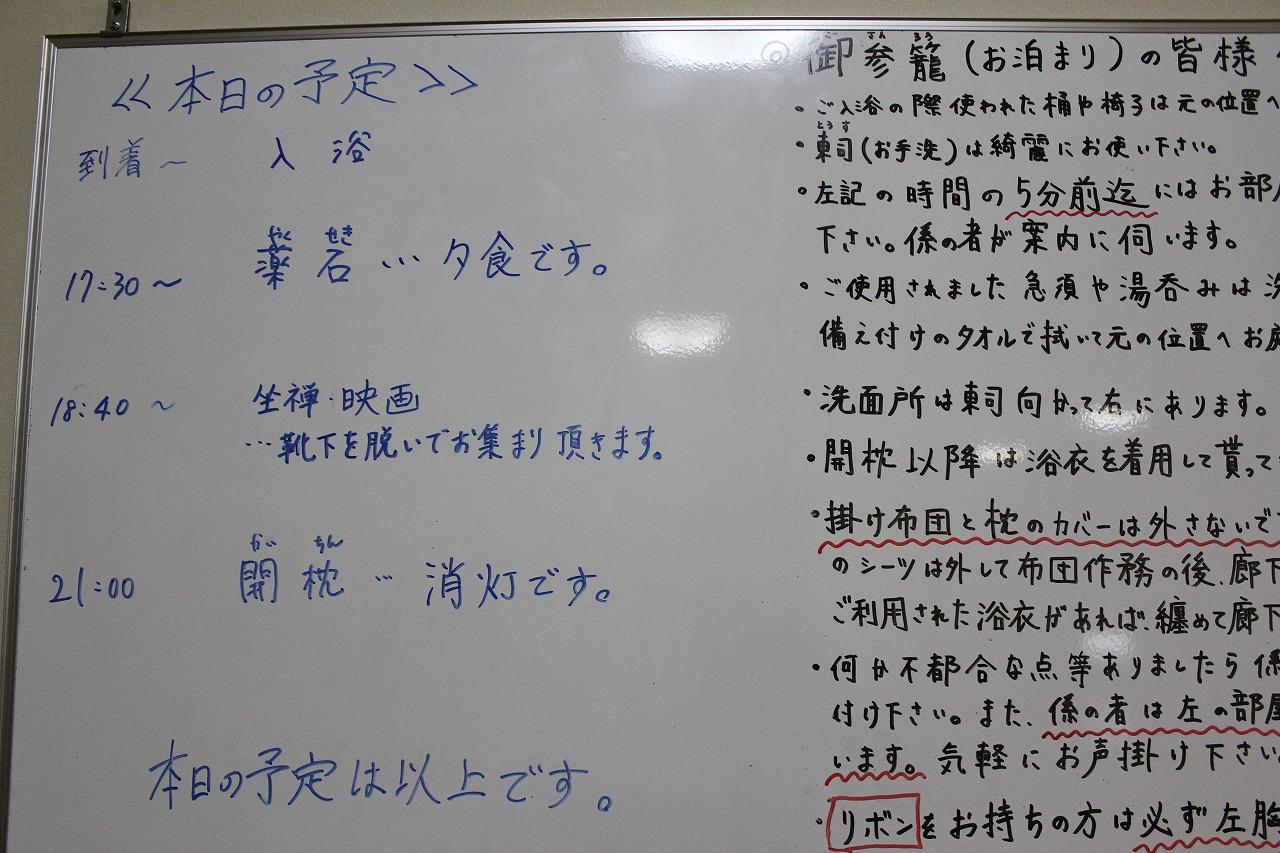 ≪本日の予定≫
到着～ 入浴
やく せき
17:30～ 薬石…夕食です。
18:40～ 坐禅・映画
…靴下を脱いでお集まり頂きます。
かい ちん
21:00 開枕…消灯です。
本日の予定は以上です。
ご さん ろう
◎御参籠(お泊まり)の皆様
・ご入浴の際使われた桶や椅子は元の位置へ
とうす
・東司(お手洗)は綺麗にお使い下さい。
・左記の時間の5分前迄にはお部
下さい。係の者が案内に伺います。
・ご使用されました急須や湯呑みは洗
備え付けのタオルで拭いて元の位置へお
・洗面所は東司向かって右にあります。
・開枕以降は浴衣を着用して貰って
・掛け布団と枕のカバーは外さないで
のシーツは外して布団作務の後、廊下
ご利用された浴衣があれば、纏めて廊下
・何か不都合な点等ありましたら係
付け下さい。また、係の者は左の部屋
います。気軽にお声掛け下さい
・リボンをお持ちの方は必ず左胸